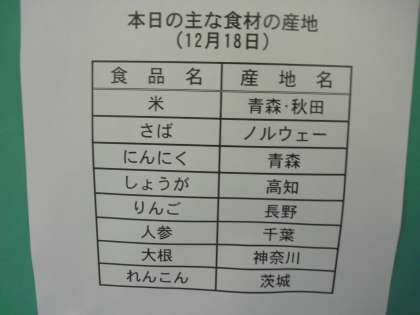 本日の主な食材の産地
(12月18日)
食品名 産地名
米 青森・秋田
さば ノルウェー
にんにく 青森
しょうが 高知
りんご 長野
人参 千葉
大根 神奈川
れんこん 茨城